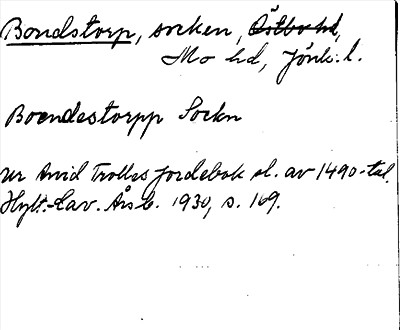 Bondstorp, socken, Östbo hd,
Mo hd, Jönk. l.
Boendestorpp Sockn
ur Arvid Trolles jordebok sl. av 1490-tal.
Hylt.-Cav. Årsb. 1930, s. 169.